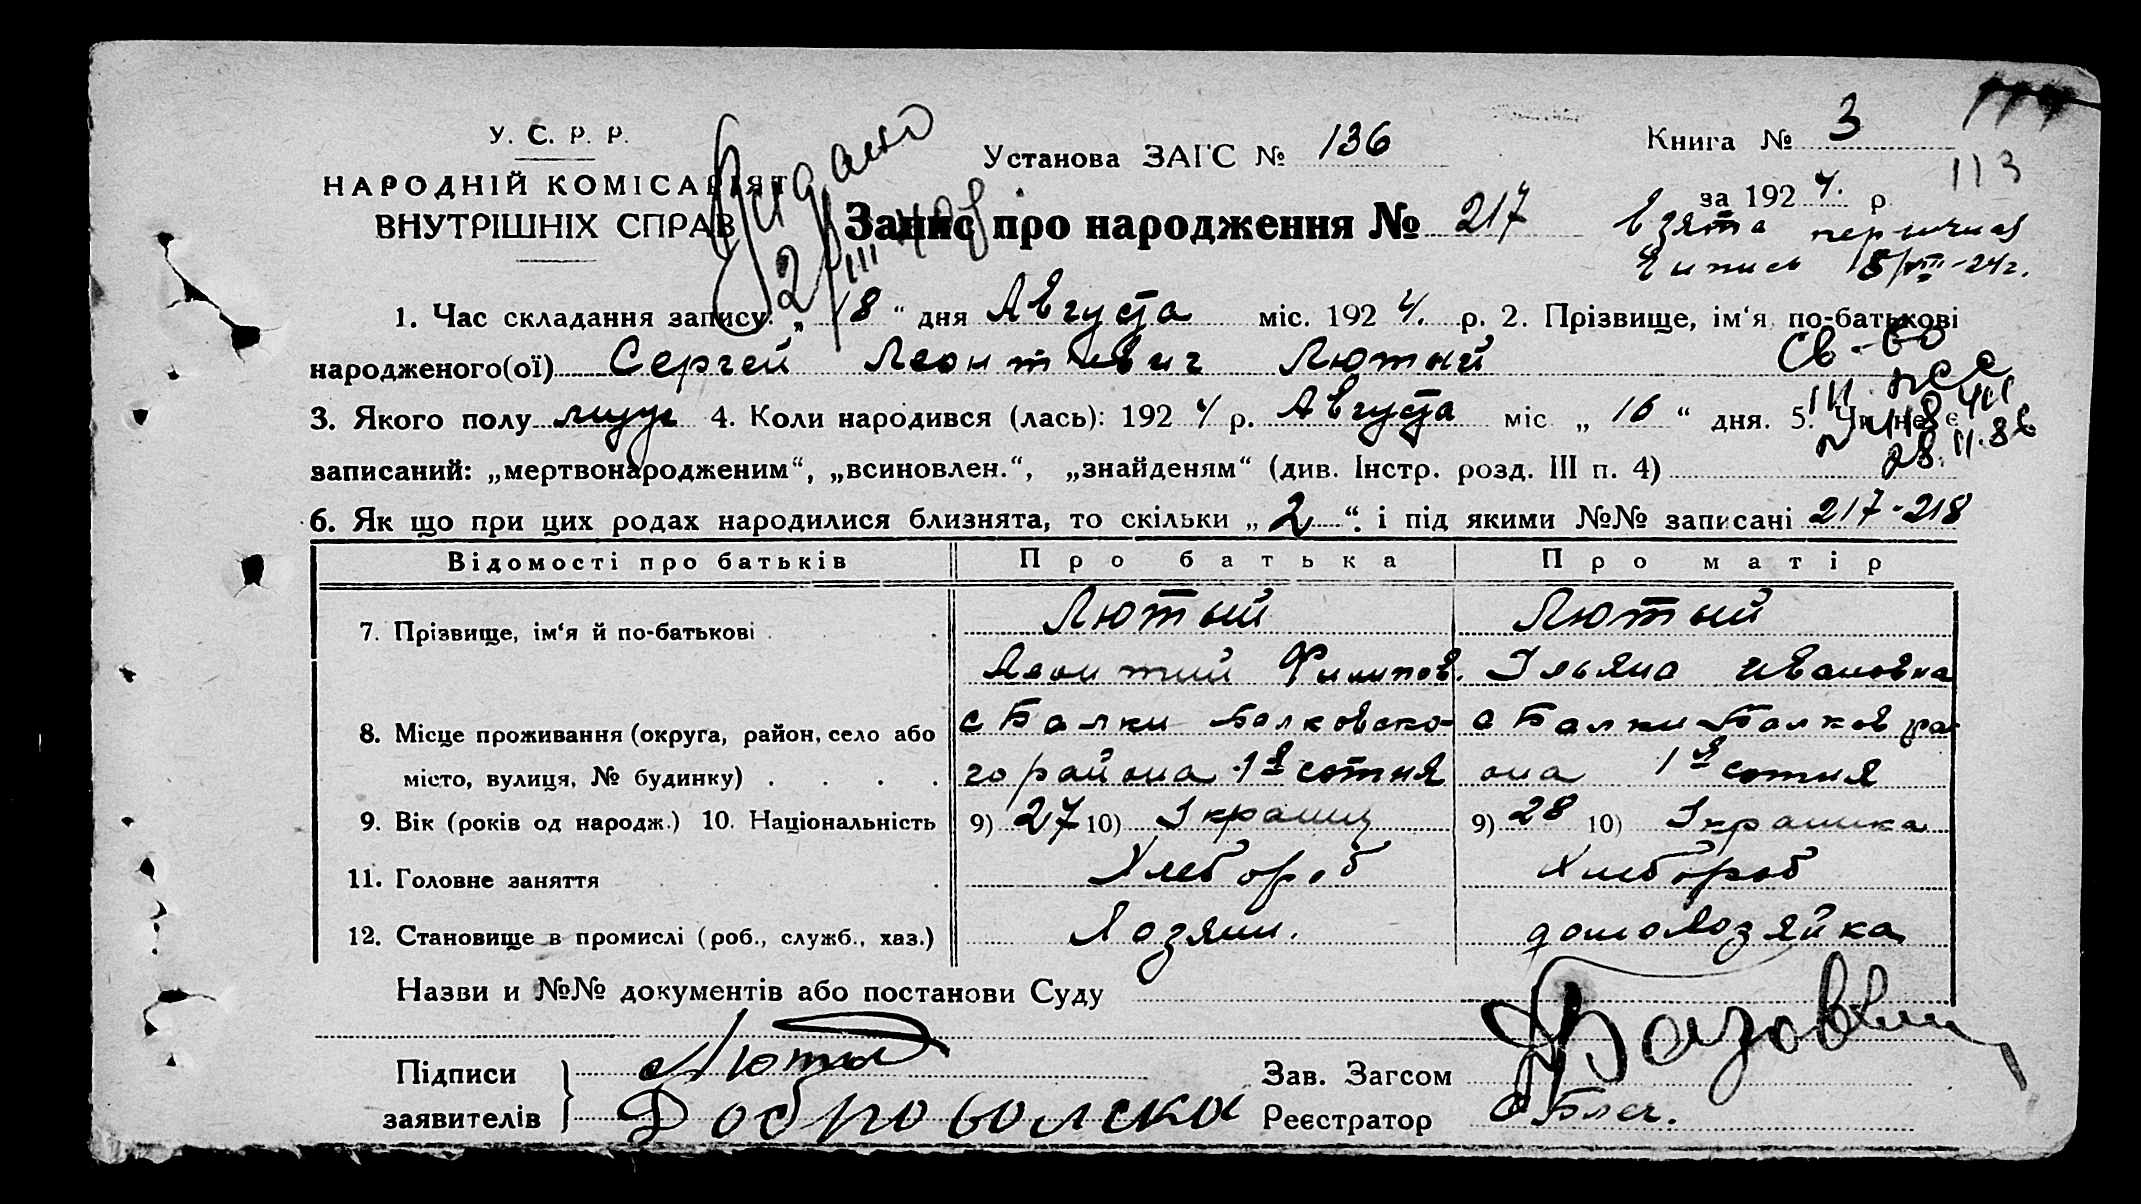 У. С. Р. Р.
НАРОДНІЙ КОМІСАРІЯТ
ВНУТРІШНІХ СПРАВ
Видано
Установа ЗАГС № 136
Книга № 3
113
за 1924. р.
Запис про народження № 217
взята первичная
выпись 18/VIII-24г.
1. Час складання запису: „18“ дня Августа міс. 1924. р. 2. Прізвище, ім‘я, по-батькові
народженого(ої) Сергей Леонтиевич Лютый
Св-во
3. Якого полу муж 4. Коли народився (лась): 1924 р. Августа міс „16“ дня. 5. Чи не є
28.II.88
записаний: „мертвонародженим“, „всиновлен.“, „знайденям“ (див. Інстр. розд. III п. 4)
6. Як що при цих родах народилися близнята, то скільки „2“. і під якими №№ записані 217-218
Відомості про батьків Про батька Про матір
7. Прізвище, ім‘я й по-батькові Лютый Лютый
Леонтий Филипов. Ульяна Ивановна
8. Місце проживання (округа, район, село або с Балки Балковско- с Балки Балков рай
місто, вулиця, № будинку) го района 1я сотня она 1я сотня
9. Вік (років од народж.) 10. Національність 9) 27 10) Украинц 9) 28 10) Украинка
11. Головне заняття Хлебороб Хлебороб
12. Становище в промислі (роб., служб., хаз.) Хозяин. домохозяйка
Назви и №№ документів або постанови Суду
Підписи
заявителів
Лютый
Зав. Загсом
Реєстратор